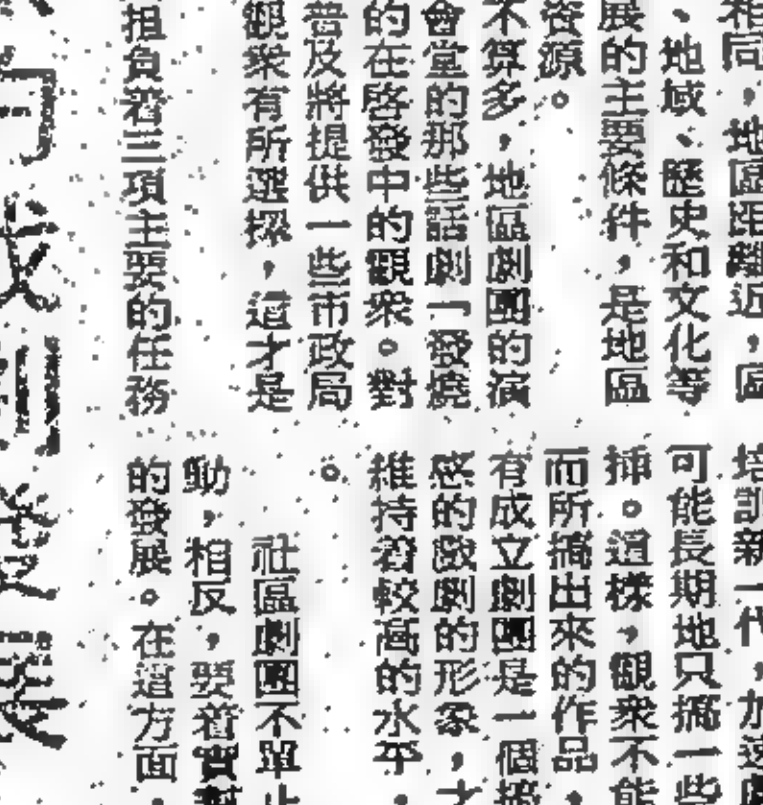 相同，地區距離近，區
、地域、歷史和文化等
展的主要條件，是地區
資源。
不算多，地區劇團的演
會堂的那些話劇「發燒
的在啓發中的觀衆。對
普及將提供一些市政局
觀衆有所選擇，這才是
担負着三項主要的任務
培訓新一代，加速
可能長期地只搞一些
揷。這樣，觀衆不能
而所搞出來的作品，
有成立劇團是一個
感的戲劇的形象，才
維持着較高的水平，
。
社區劇團不單止
動，相反，要着實
的發展。在這方面，
的戲劇發展